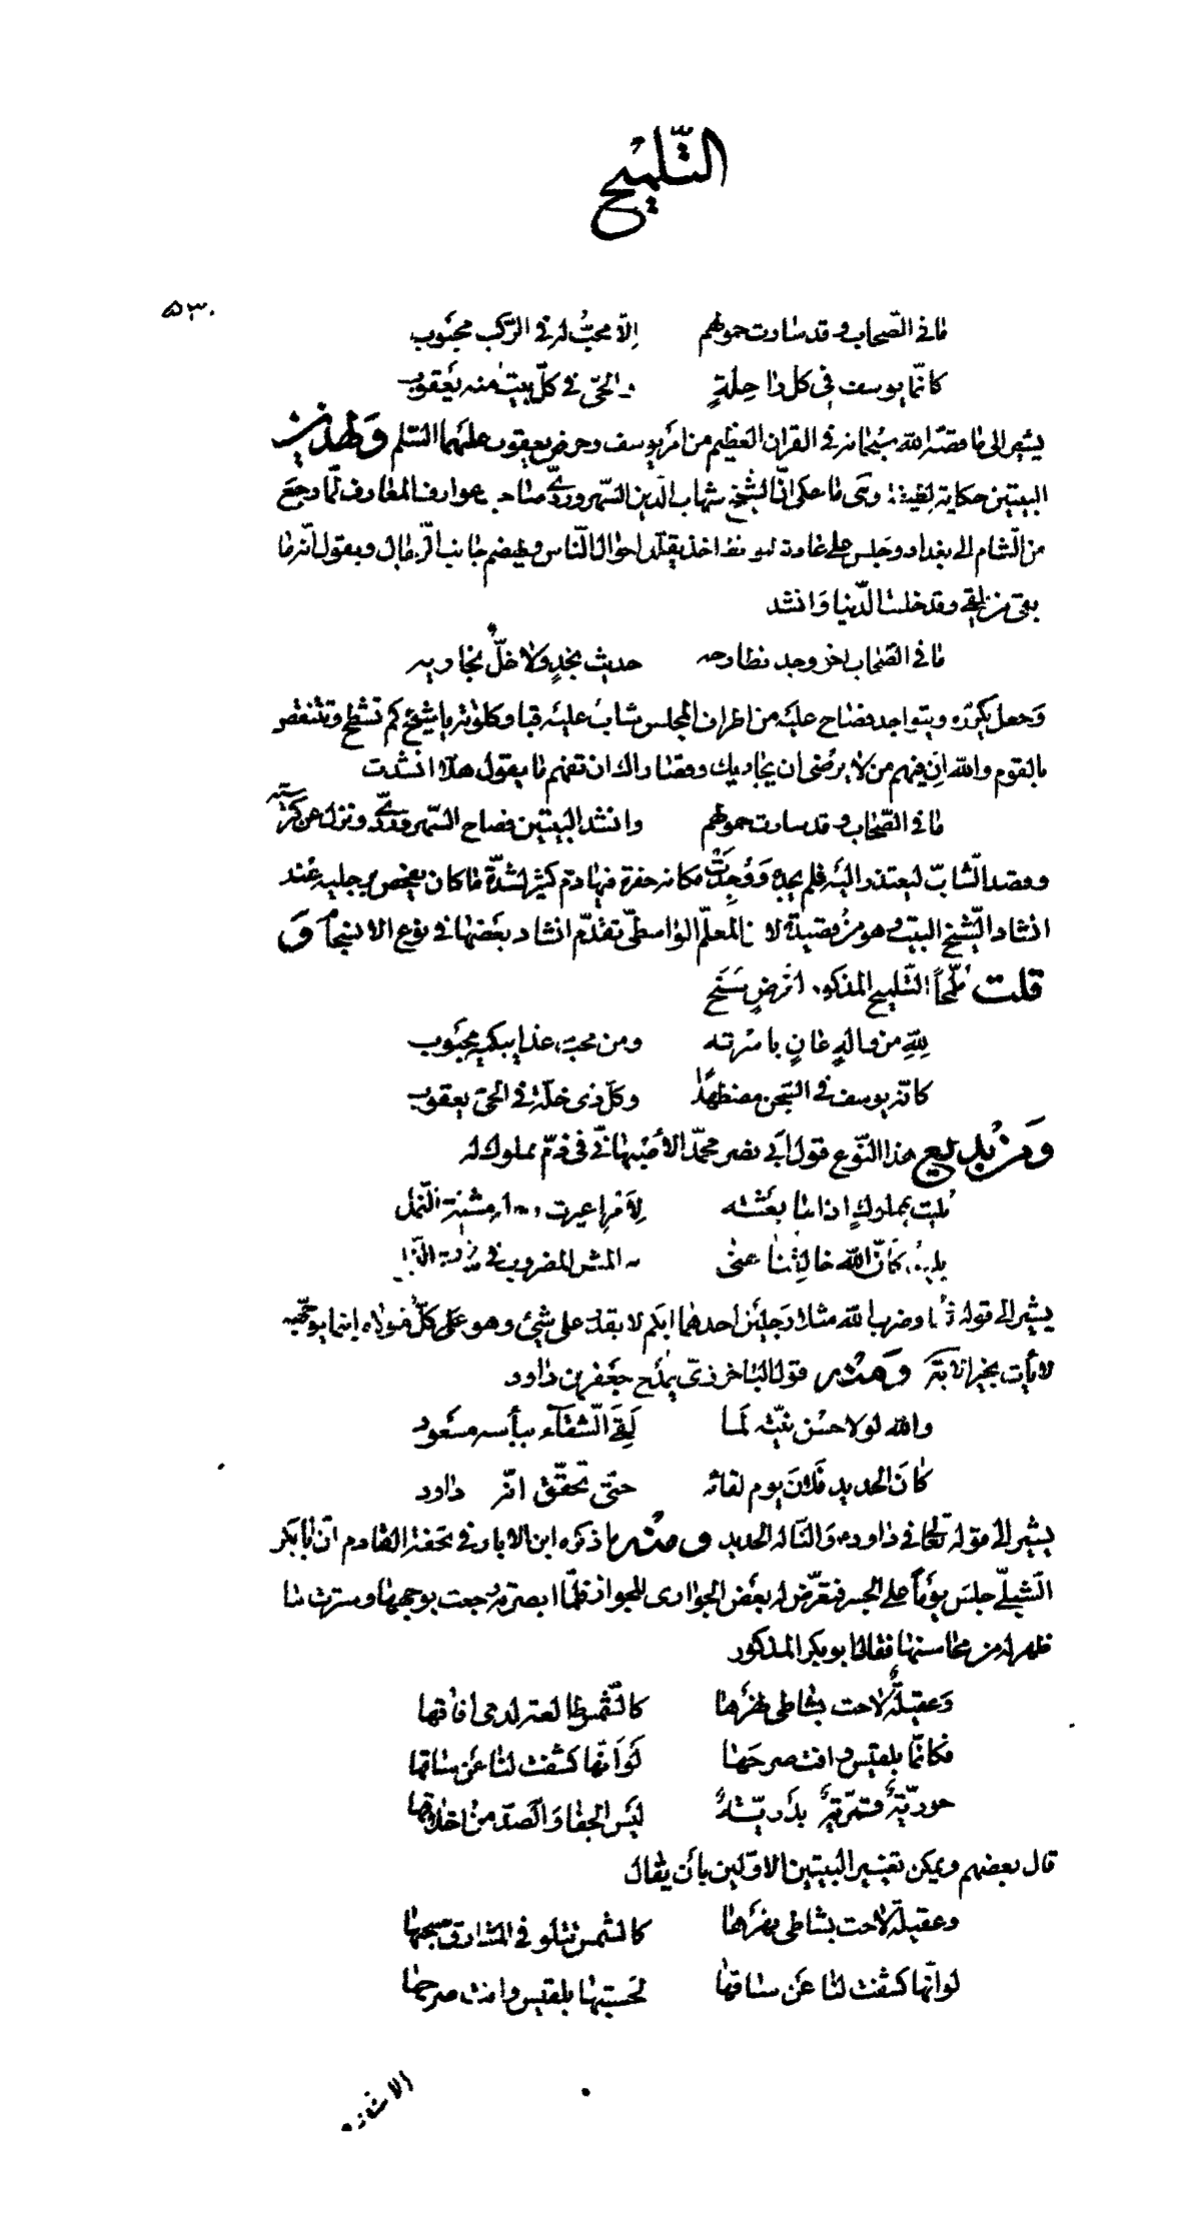 التّلميح
٥٣٠
ما في الصّحاب وقد سارت حمولهم إلّا محبّ له في الرّكب محبوب
كانّما يوسف في كل راحلةٍ والحيّ في كلّ بيت منه يعقوب
يشير الى ما قصّه الله سبحانه في القران العظيم من امر يوسف وحزن يعقوب عليهما السّلم ولهذين
البيتين حكاية لطيفة وهي ما حكى انّ الشيخ شهاب الدّين السّهروردي صاحب عوارف المعارف لمّا رجع
من الشام الى بغداد وجلس على عادته اخذ يقلّل احوال النّاس ويهضم جانب الرّجال ويقول انّه ما
بقى من وقد خلت الدّنيا وانشد
ما في الصّحاب اخو وجد نطارحه حديث نجدٍ ولا خلّ نجاريه
وجعل يكرّره ويتواجد فصاح عليه من اطراف المجلس شاب عليه قبا وكلوتة يا شيخ كم تشطح وتنتقص
بالقوم والله ان فيهم من لا يرضى ان يجاريك وقصاراك ان تفهم ما يقول هلّا انشدت
ما في الصّحاب وقد سارت حمولهم وانشد البيتين فصاح السّهروردي ونزل عن كرسيّه
وقصد الشّابّ ليعتذر اليه فلم يجده ووجدت مكانه حفرة فيها دم كثير لشدّة ما كان يفحص برجليه عند
انشاد الشّيخ البيت وهو من قصيدة لابن المعلّم الواسطيّ تقدّم انشاد بعضها في نوع الانسجام و
قلت ملمّحاً التّلميح المذكور
لله من واله عانٍ باسرته ومن محبّ غدا يبكيه محبوب
كانّه يوسف في السّجن مضطهداً وكلّ ذى خلّة في الحيّ يعقوب
ومن بديع هذا النّوع قول ابي نصر محمّد الأصبهانيّ في ذمّ مملوك له
بليت بمملوكٍ اذا ما بعثته لأمرٍ اعيرت رجله مشية النّمل
بليد كأنّ الله خالقنا عنى به المثل المضروب في سورة النّحل
يشير الى قوله تعالى وضرب الله مثلا رجلين احدهما ابكم لا يقدر على شيء وهو كلّ على مولاه اينما يوجّهه
لا يأت بخير الآية ومنه قول الباخرزيّ يمدح جعفر بن داود
والله لولا حسن نيّته لما لقي الشّقاء ببأسه مسعود
كان الحديد فلان يوم لقائه حتّى تحقّق انّه داود
يشير الى قوله تعالى في داود والنّا له الحديد ومنه ما ذكره ابن الابار في تحفة القادم انّ ابا بكر
الشّبليّ جلس يوماً على الجسر فتعرّض له بعض الجوارى للجواز فلمّا ابصرته رجعت بوجهها وسترت ما
ظهر له من محاسنها فقال ابو بكر المذكور
وعقيلةٌ لاحت بشاطئ نهرها كالشّمس طالعة لدى افاقها
فكانّها بلقيس وافت صرحها لو انّها كشفت لنا عن ساقها
حوريّةٌ قمريّةٌ بدريّةٌ ليس الجفا والصّدّ من اخلاقها
قال بعضهم ويمكن تغيير البيتين الاوّلين بأن يقال
وعقيلة لاحت بشاطئ نهرها كالشمس تتلو في المشارق صبحها
لو انّها كشفت لنا عن ساقها لحسبتها بلقيس وافت صرحها